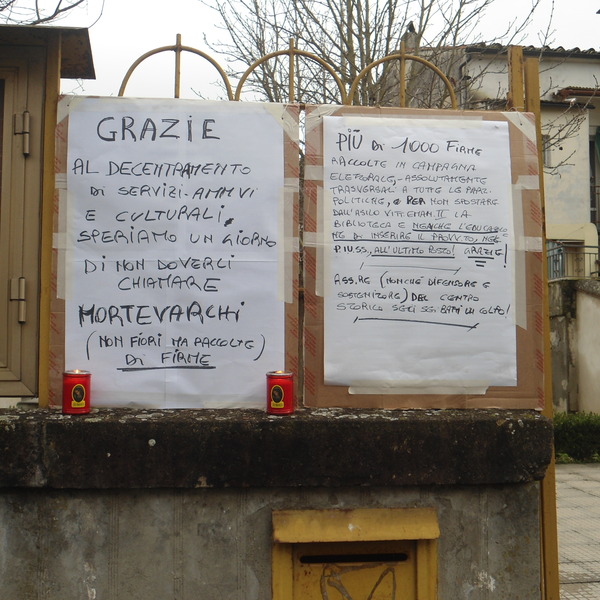 GRAZIE
AL DECENTRAMENTO
DI SERVIZI AMM.VI
E CULTURALI,
SPERIAMO UN GIORNO
DI NON DOVERLI
CHIAMARE
MORTEVARCHI
(NON FIORI MA RACCOLTE)
DI FIRME
PIÙ DI 1000 FIRME
RACCOLTE IN CAMPAGNA
ELETTORALE, ASSOLUTAMENTE
TRASVERSALI A TUTTE LE PARZ.
POLITICHE, E PER NON SPOSTARE
DALL'ASILO VITT. EMAN. II LA
BIBLIOTECA E
NE DI INSERIRE IL
P.I.U.S.S., ALL'ULTIMO POSTO! GRAZIE!
ASS.RE (NONCHÉ DIFENSORE E
SOSTENITORE) DEL CENTRO
STORICO BATTI UN COLPO!